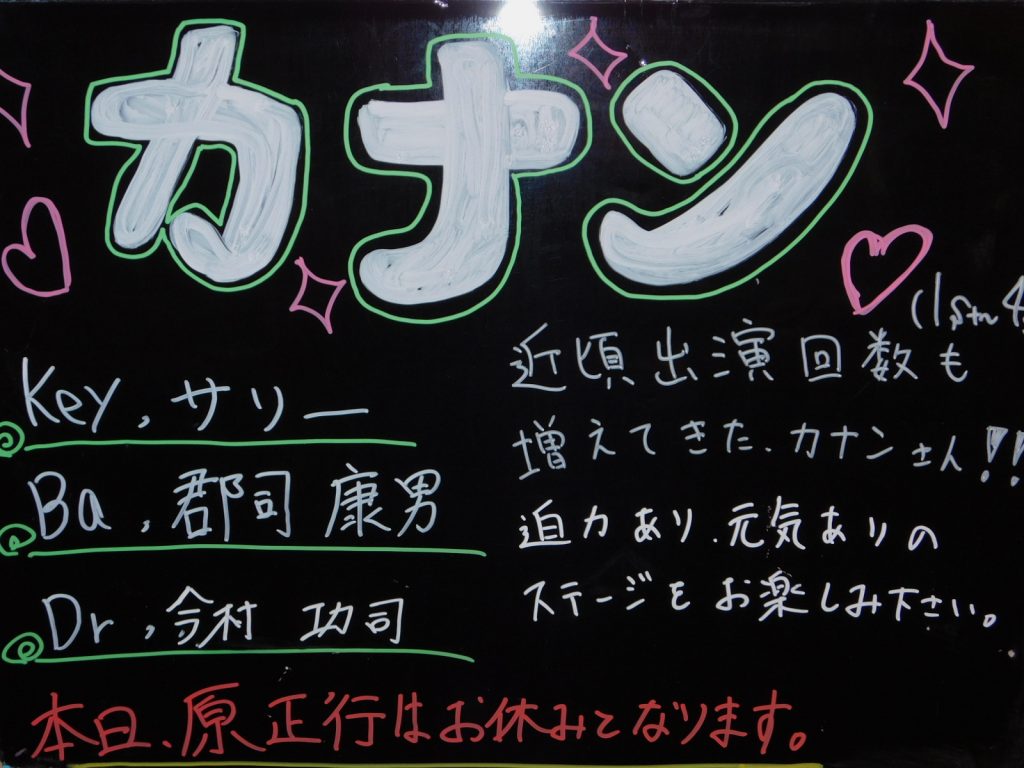 カナン
Key, サリー
Ba, 郡司 康男
Dr, 今村 功司
近頃出演回数も
増えてきた、カナンさん!!
迫力あり、元気ありの
ステージをお楽しみ下さい。
本日、原 正行はお休みとなります。